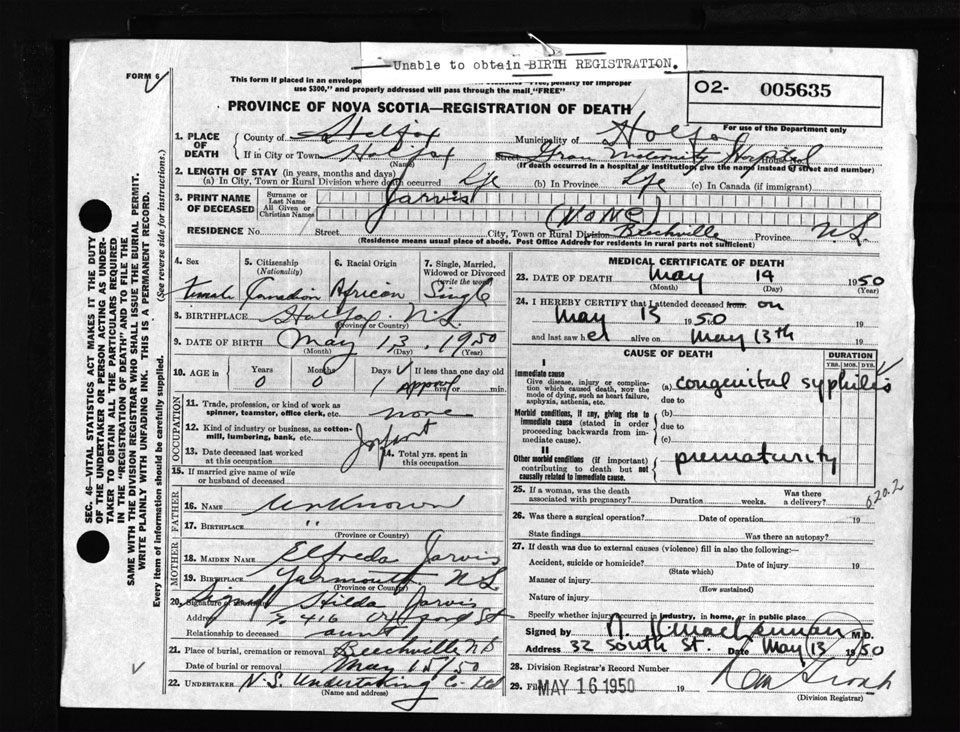 Unable to obtain BIRTH REGISTRATION.
FORM 6
This form if placed in an envelope Statistics "Free, penalty for improper
use $300," and properly addressed will pass through the mail "FREE"
02- 005635
PROVINCE OF NOVA SCOTIA—REGISTRATION OF DEATH
For use of the Department only
1. PLACE OF DEATH { County of Halifax Municipality of Halifax
If in City or Town Halifax (Name) Street Grace Maternity Hospital House No.
(If death occurred in a hospital or institution, give the name instead of street and number)
2. LENGTH OF STAY (in years, months and days)
(a) In City, Town or Rural Division where death occurred Life (b) In Province Life (c) In Canada (if immigrant)
3. PRINT NAME OF DECEASED { Surname or Last Name Jarvis
All Given or Christian Names (NONE)
RESIDENCE No. Street City, Town or Rural Division Beechville Province N.S.
(Residence means usual place of abode. Post Office Address for residents in rural parts not sufficient)
4. Sex Female
5. Citizenship (Nationality) Canadian
6. Racial Origin African
7. Single, Married, Widowed or Divorced (write the word) Single
8. BIRTHPLACE Halifax N.S.
(Province or Country)
9. DATE OF BIRTH May 13, 1950
(Month) (Day) (Year)
10. AGE in { Years 0 Months 0 Days 1 If less than one day
Approx hrs. or min.
OCCUPATION
11. Trade, profession, or kind of work as spinner, teamster, office clerk, etc. none
12. Kind of industry or business, as cotton-mill, lumbering, bank, etc. Infant
13. Date deceased last worked at this occupation
14. Total yrs. spent in this occupation
15. If married give name of wife or husband of deceased
FATHER
16. NAME Unknown
17. BIRTHPLACE "
(Province or Country)
MOTHER
18. MAIDEN NAME Elfreda Jarvis
19. BIRTHPLACE Yarmouth N.S.
(Province or Country)
20. Signature of Informant Signed Hilda Jarvis
Address % 416 Oxford St
Relationship to deceased aunt
21. Place of burial, cremation or removal Beechville N.S
Date of burial or removal May 15/50
22. UNDERTAKER N.S. Undertaking Co. Ltd
(Name and address)
MEDICAL CERTIFICATE OF DEATH
23. DATE OF DEATH May 14 1950
(Month) (Day) (Year)
24. I HEREBY CERTIFY that I attended deceased from on
May 13 1950 to 19
and last saw her alive on May 13th 19
CAUSE OF DEATH
DURATION
YRS. MOS. DYS.
I
Immediate cause
Give disease, injury or complication which caused death, not the mode of dying, such as heart failure, asphyxia, asthenia, etc.
(a) congenital syphilis
due to
Morbid conditions, if any, giving rise to immediate cause (stated in order proceeding backwards from immediate cause).
(b)
due to
(c)
II
Other morbid conditions (if important) contributing to death but not causally related to immediate cause.
prematurity
25. If a woman, was the death associated with pregnancy? Duration weeks. Was there a delivery?
020.2
26. Was there a surgical operation? Date of operation 19
State findings Was there an autopsy?
27. If death was due to external causes (violence) fill in also the following:—
Accident, suicide or homicide? Date of injury 19
(State which)
Manner of injury
(How sustained)
Nature of injury
Specify whether injury occurred in industry, in home, or in public place
Signed by M.D.
Address 32 South St. Date May 13 1950
28. Division Registrar's Record Number
29. Filed MAY 16 1950 19
(Division Registrar)
SEC. 46—VITAL STATISTICS ACT MAKES IT THE DUTY
OF THE UNDERTAKER OR PERSON ACTING AS UNDER-
TAKER TO OBTAIN ALL THE PARTICULARS REQUIRED
IN THE "REGISTRATION OF DEATH" AND TO FILE THE
SAME WITH THE DIVISION REGISTRAR WHO SHALL ISSUE THE BURIAL PERMIT.
WRITE PLAINLY WITH UNFADING INK. THIS IS A PERMANENT RECORD.
Every item of information should be carefully supplied. (See reverse side for instructions.)